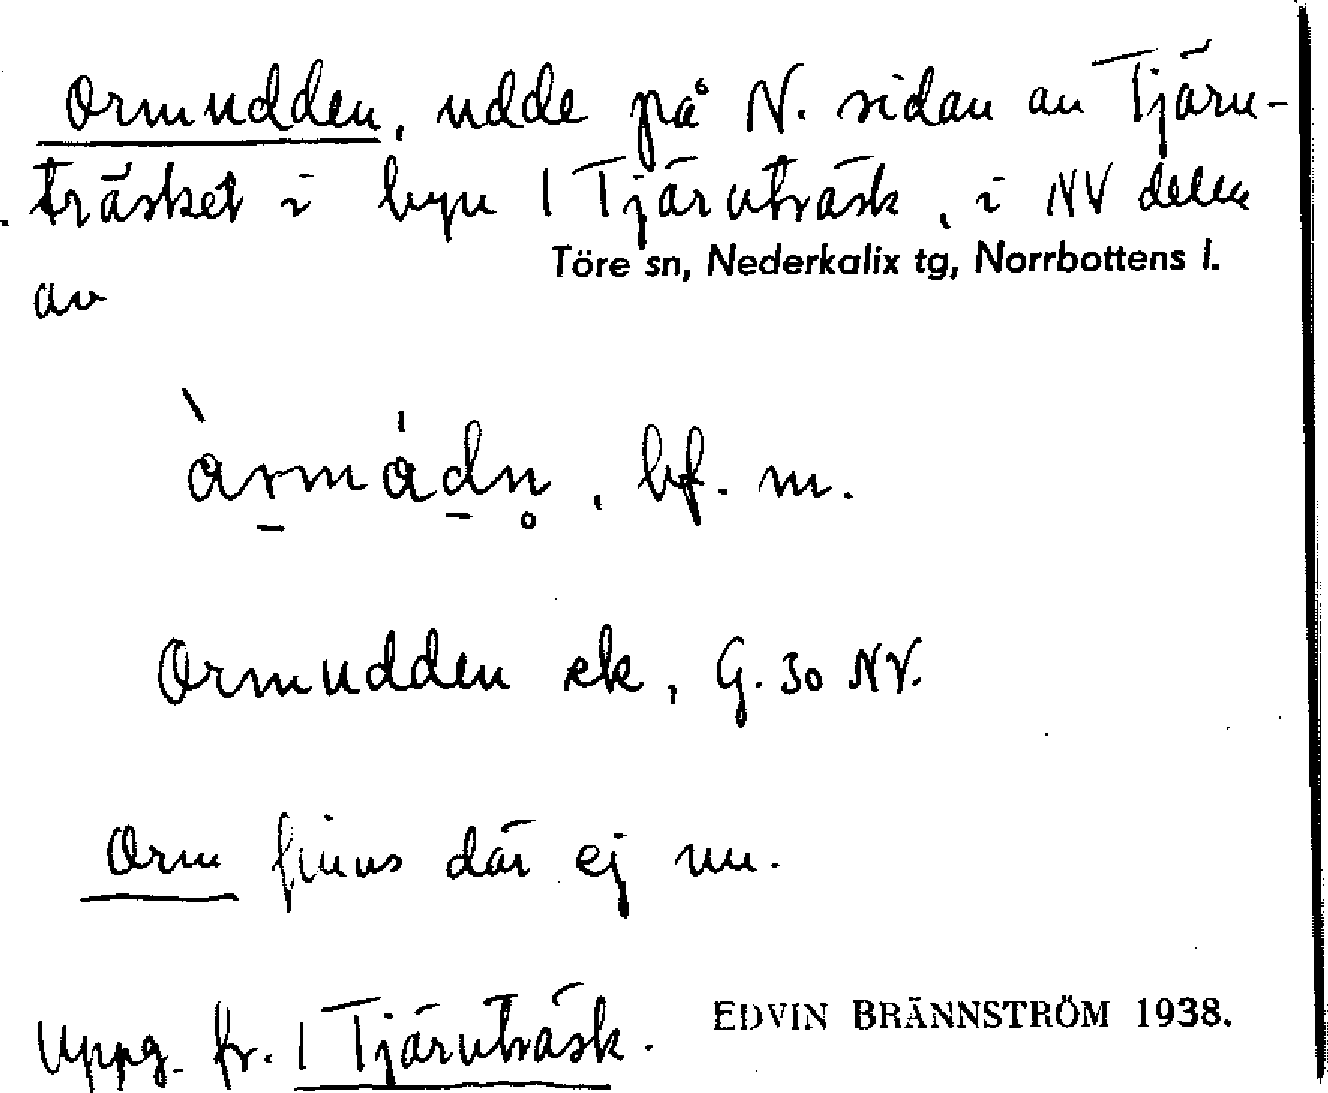 Ormudden, udde på N. sidan av Tjärn-
träsket i byn 1 Tjärnträsk, i NV delen
av Töre sn, Nederkalix tg, Norrbottens l.
àrmádn̥, bf. m.
Ormudden ek, G. 30 NV.
Orm finns där ej nu.
Uppg. fr. 1 Tjärnträsk. EDVIN BRÄNNSTRÖM 1938.